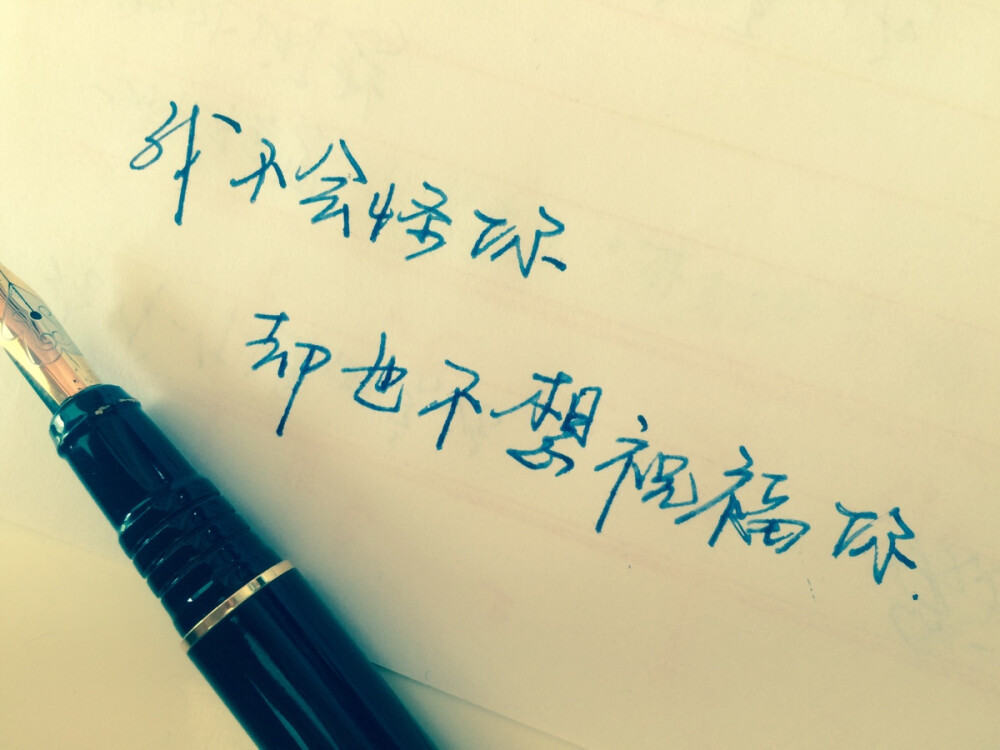 我不会怪你
却也不想祝福你.